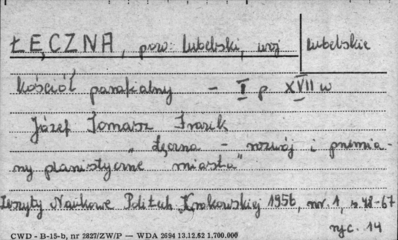 ŁĘCZNA, pow: lubelski, woj lubelskie
Kościół parafialny - I p XVII w
Józef Tomasz Frazik
"Łęczna - rozwój i przemia-
ny planistyczne miasta"
Zeszyty Naukowe Politech. Krakowskiej 1956, nr. 1, s. 48-67
ryc. 14
CWD - B-15-b, nr 2827/ZW/P — WDA 2694 13.12.62 1.700.000